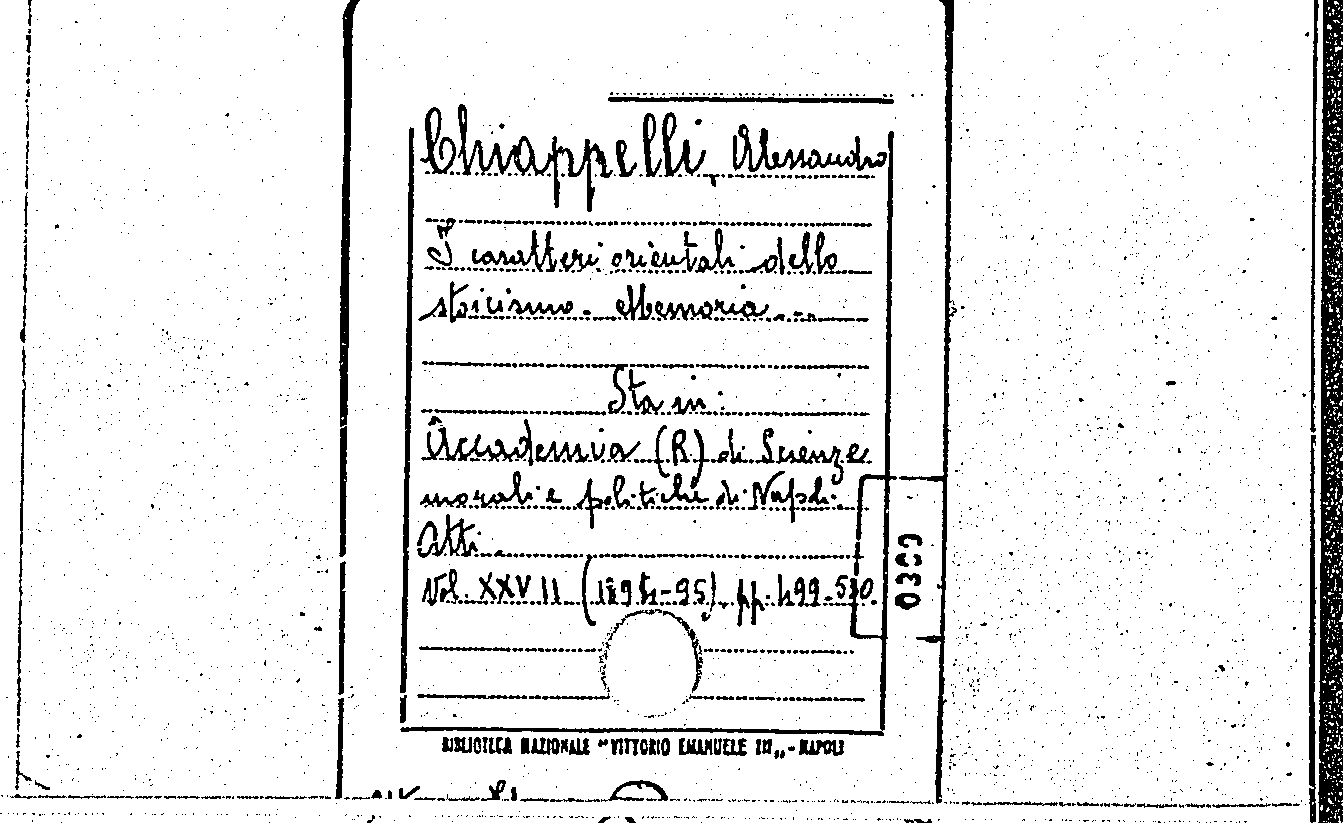 Chiappelli, Alessandro
I caratteri orientali dello
stoicismo. Memoria...
Sta in:
Accademia (R) di Scienze
morali e politiche di Napoli.
Atti.
Vol. XXVII (1894-95). pp. 499-530.
0300
BIBLIOTECA NAZIONALE "VITTORIO EMANUELE III„ - NAPOLI